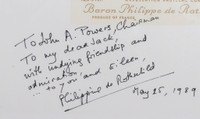 Baron Philippe de Rot
To John A. Powers, Chairman
To my dear Jack,
with undying friendship and
admiration,
to you and Eileen,
Philippine de Rothschild
May 25, 1989